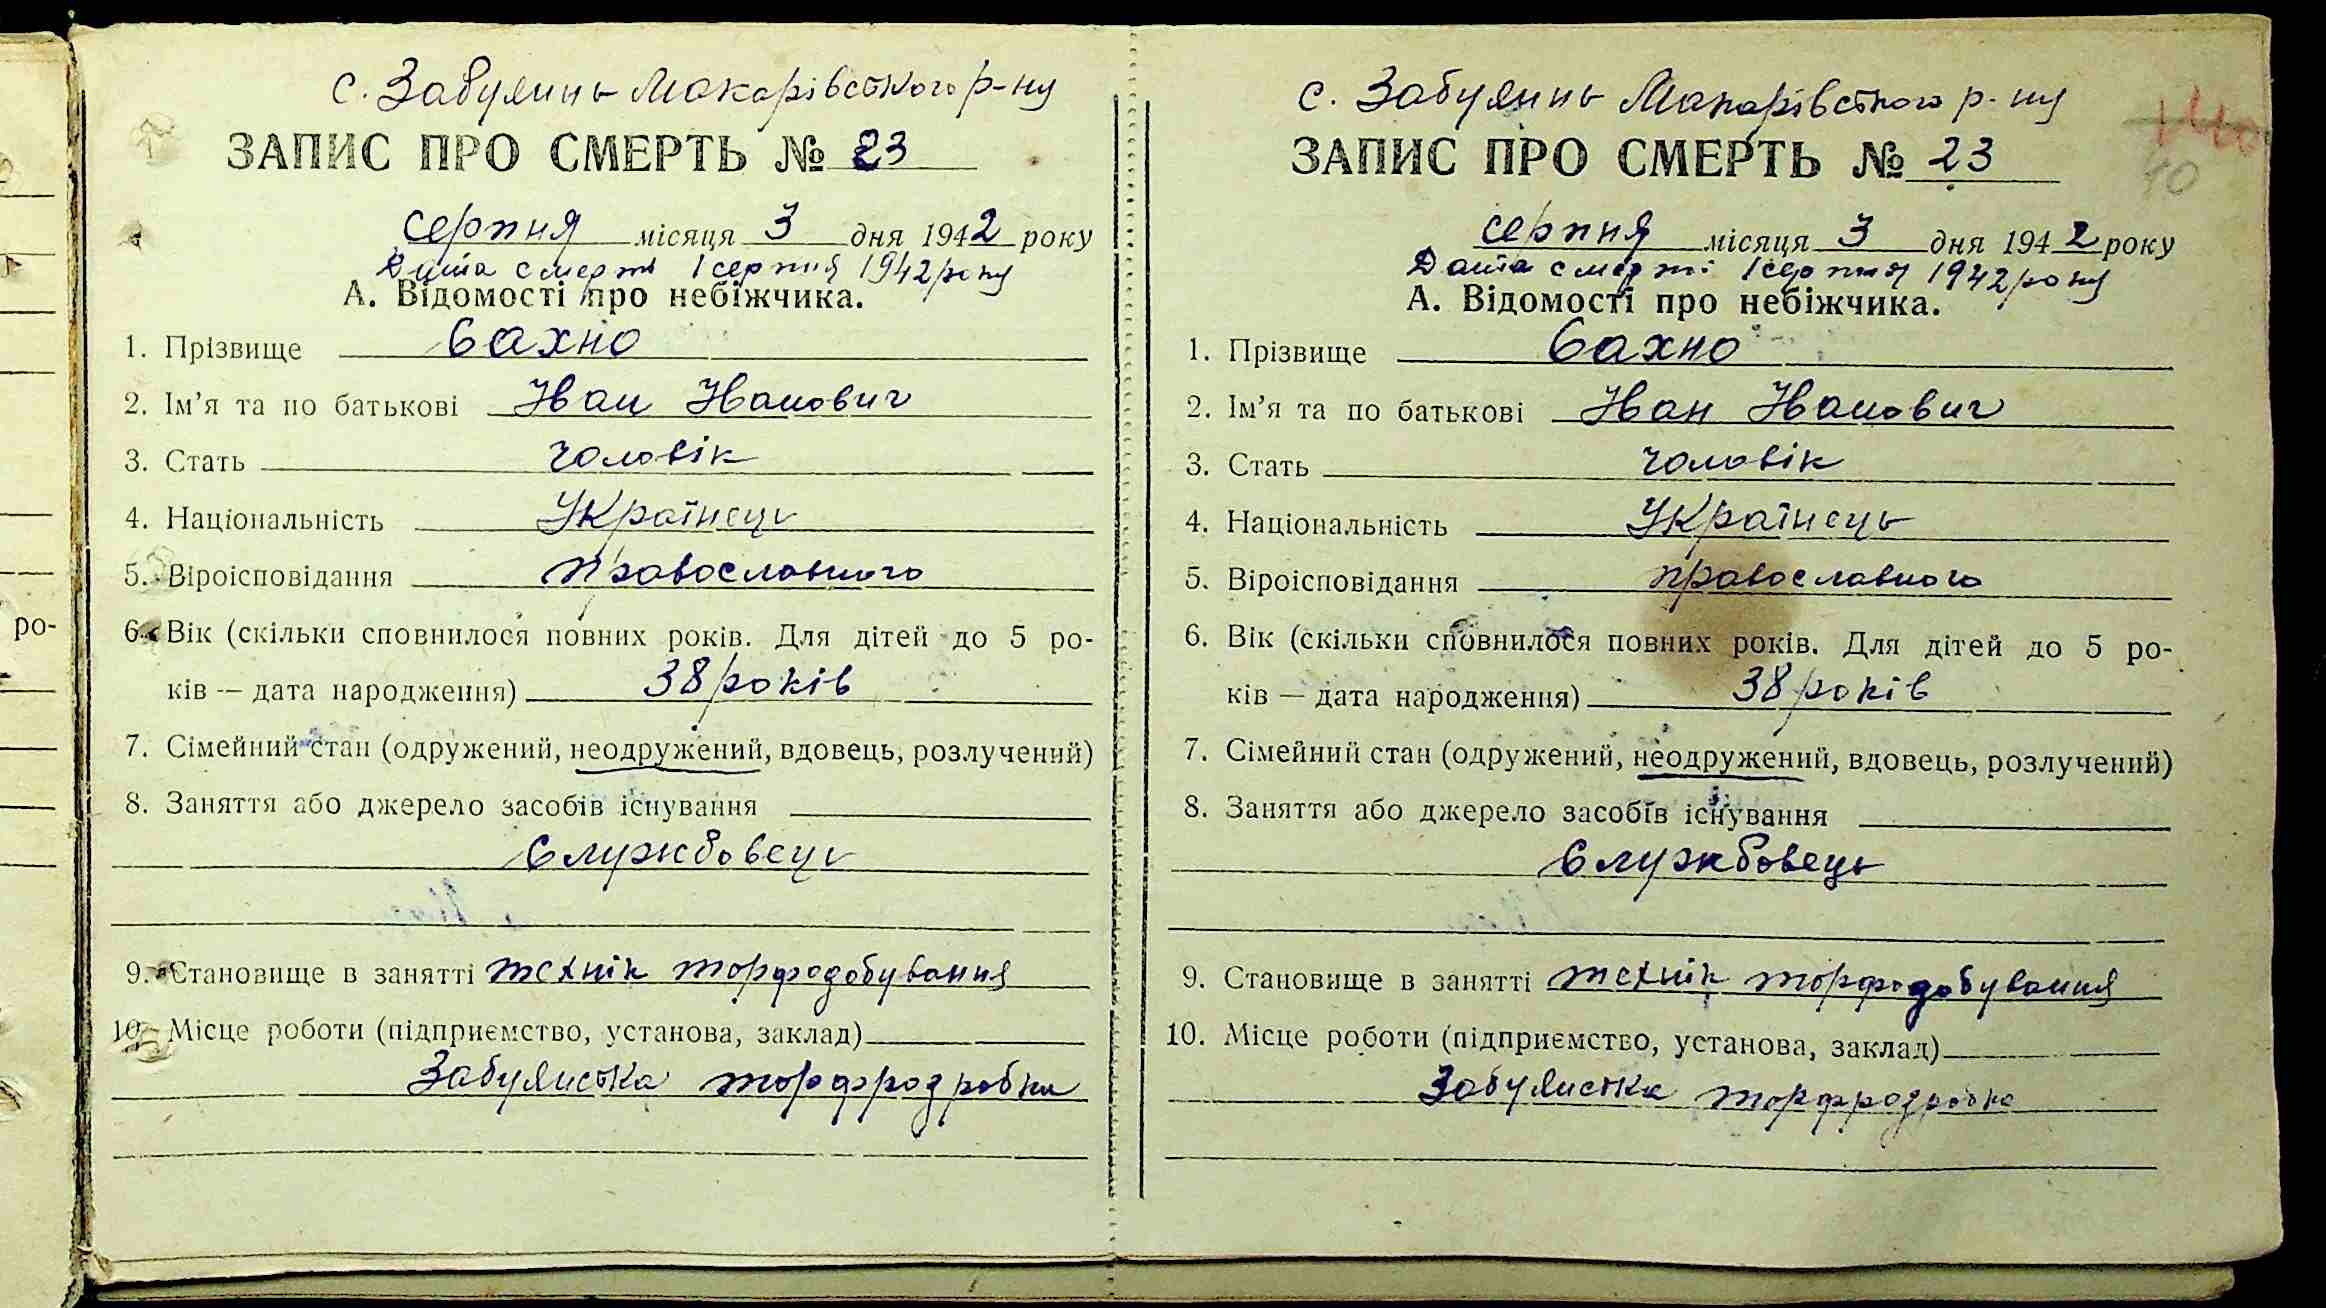 ро-
с. Забуяннь Макарівського р-ну
ЗАПИС ПРО СМЕРТЬ № 23
серпня місяця 3 дня 1942 року
Дата смерті 1 серпня 1942 року
А. Відомості про небіжчика.
1. Прізвище Сахно
2. Ім'я та по батькові Іван Іванович
3. Стать чоловік
4. Національність Українець
5. Віроісповідання православного
6. Вік (скільки сповнилося повних років. Для дітей до 5 ро-
ків — дата народження) 38 років
7. Сімейний стан (одружений, неодружений, вдовець, розлучений)
8. Заняття або джерело засобів існування
Службовець
9. Становище в занятті технік торфодобування
10. Місце роботи (підприємство, установа, заклад)
Забуянська торфрозробка
с. Забуяннь Макарівського р-ну
ЗАПИС ПРО СМЕРТЬ № 23
10
серпня місяця 3 дня 1942 року
Дата смерті 1 серпня 1942 року
А. Відомості про небіжчика.
1. Прізвище Сахно
2. Ім'я та по батькові Іван Іванович
3. Стать чоловік
4. Національність Українець
5. Віроісповідання православного
6. Вік (скільки сповнилося повних років. Для дітей до 5 ро-
ків — дата народження) 38 років
7. Сімейний стан (одружений, неодружений, вдовець, розлучений)
8. Заняття або джерело засобів існування
Службовець
9. Становище в занятті технік торфодобування
10. Місце роботи (підприємство, установа, заклад)
Забуянська торфрозробка